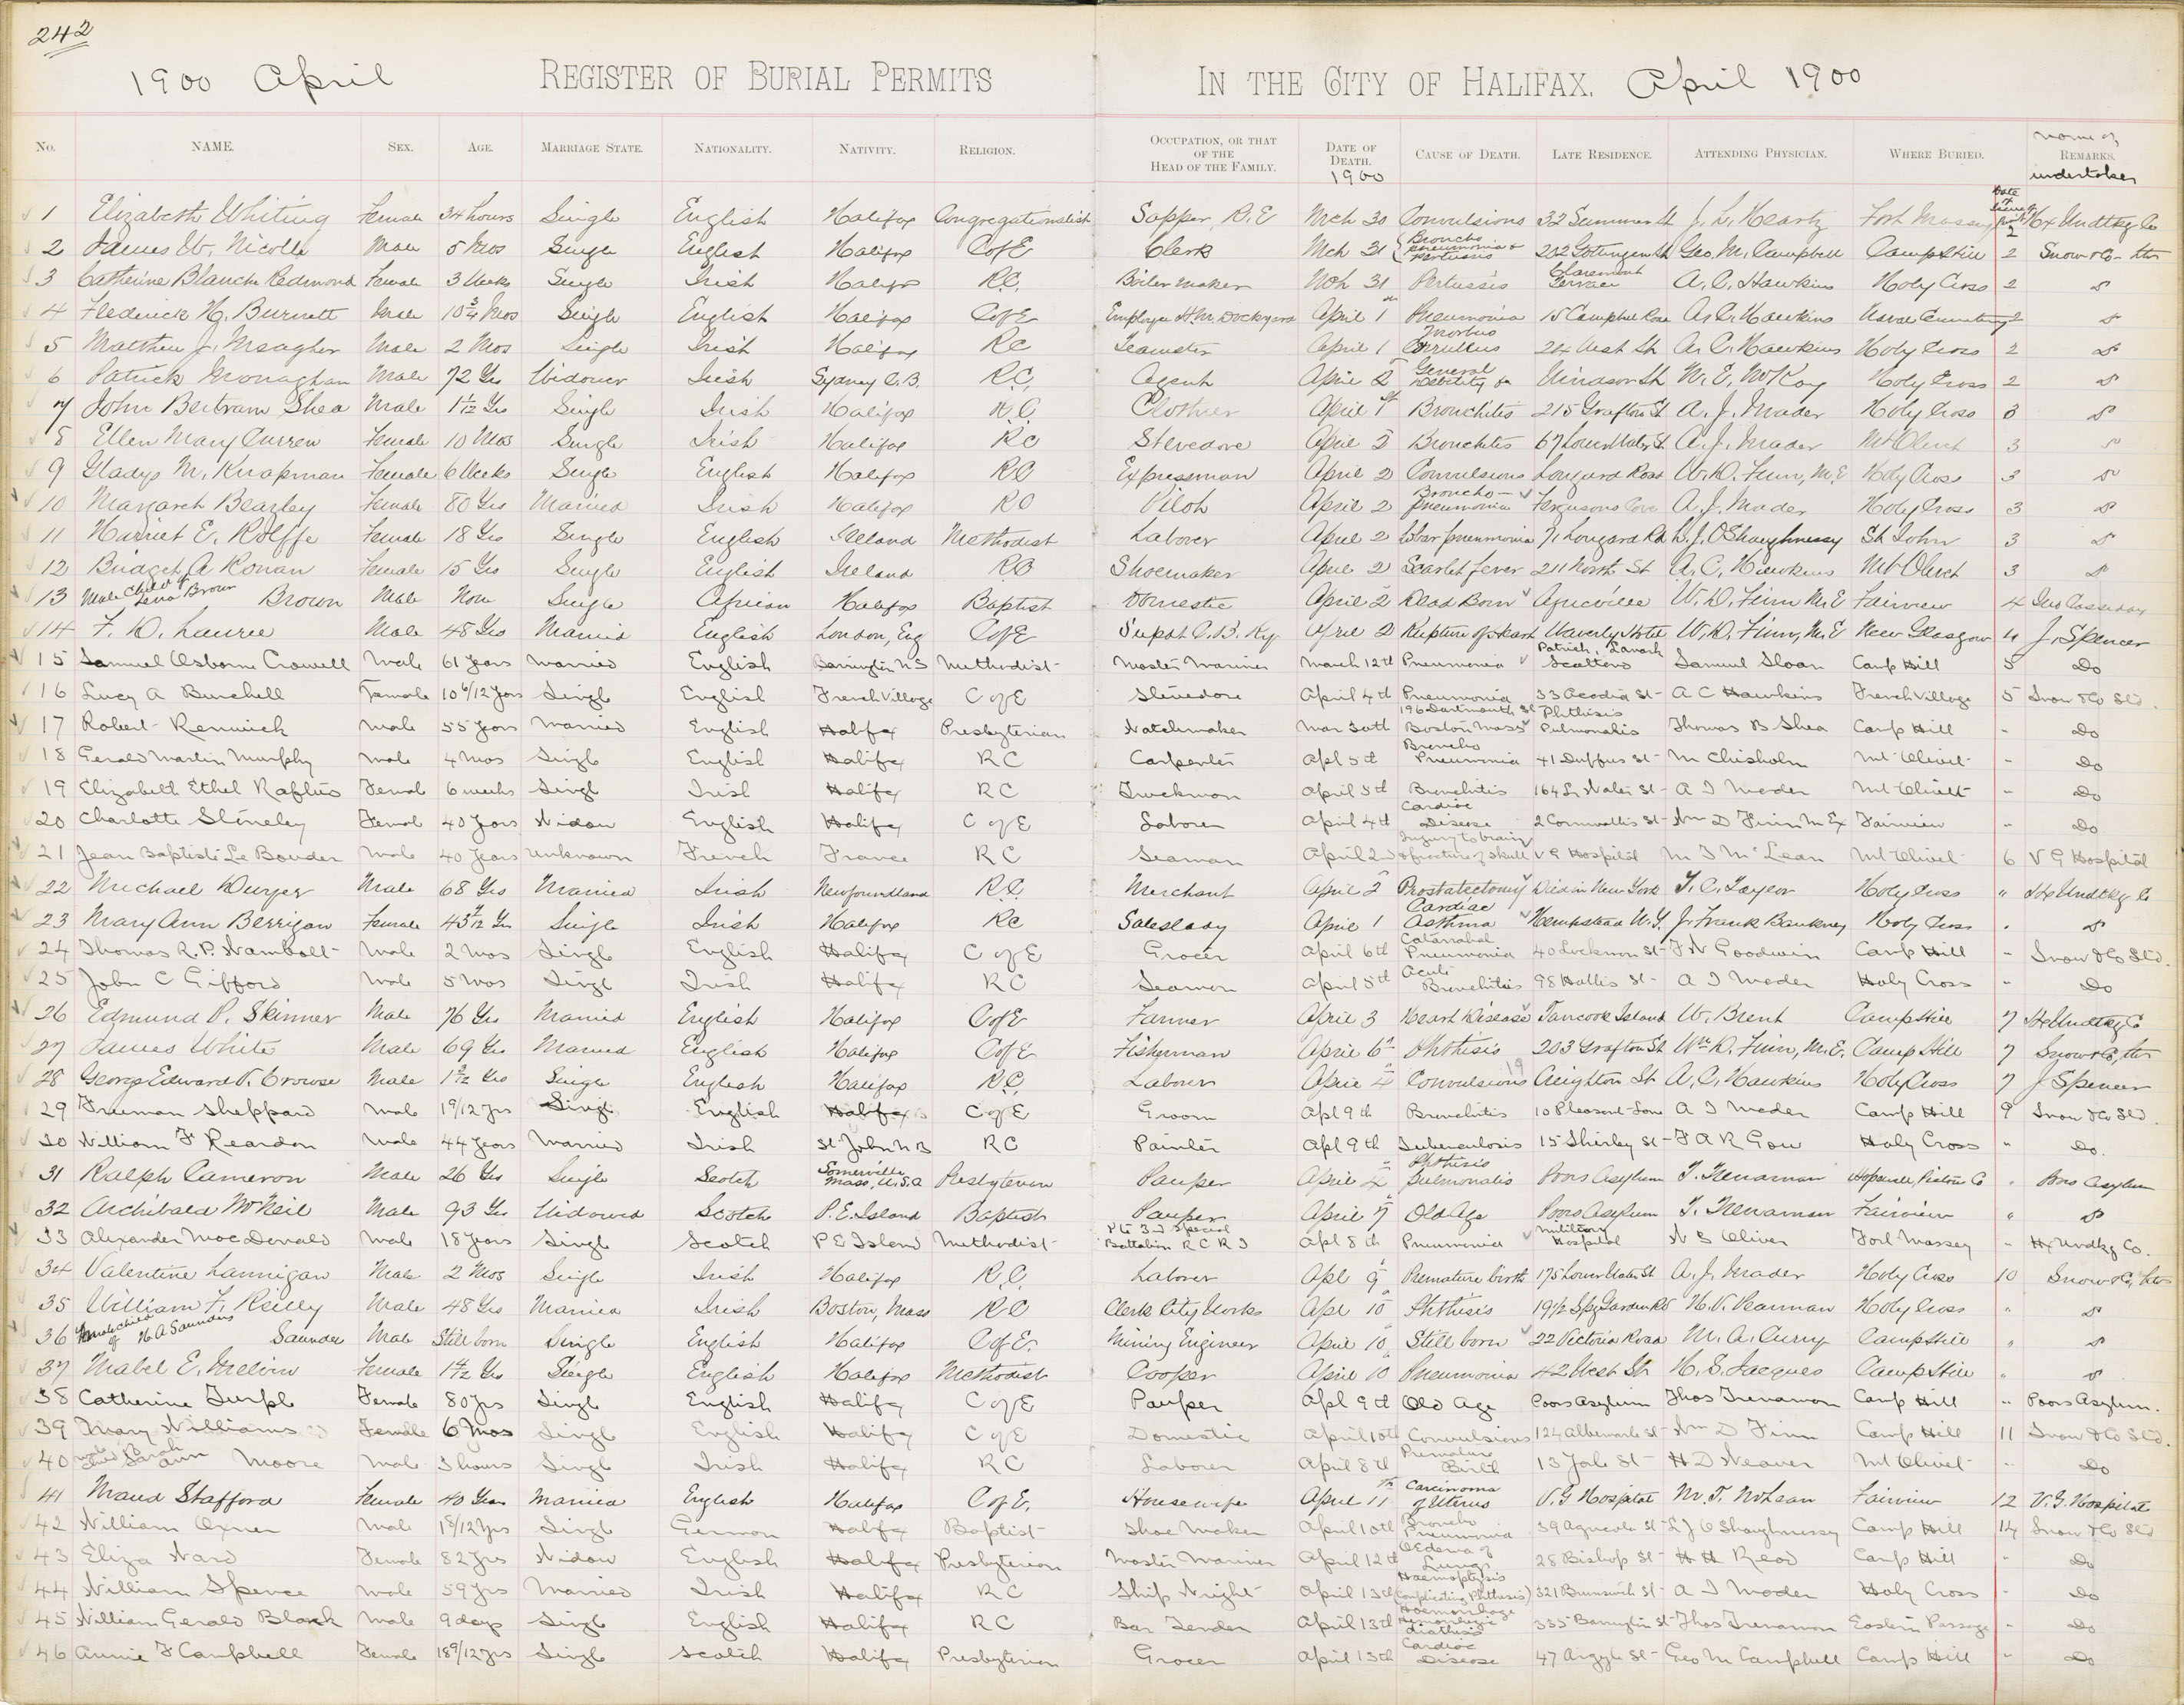 242
1900 April REGISTER OF BURIAL PERMITS IN THE CITY OF HALIFAX. April 1900
No. NAME. SEX. AGE. MARRIAGE STATE. NATIONALITY. NATIVITY. RELIGION. OCCUPATION, OR THAT OF THE HEAD OF THE FAMILY. DATE OF DEATH. 1900 CAUSE OF DEATH. LATE RESIDENCE. ATTENDING PHYSICIAN. WHERE BURIED. Name of REMARKS. undertaker
1 Elizabeth Whiting Female 34 hours Single English Halifax Congregationalist Sapper, R.E Mch 30 Convulsions 32 Summer St J. L. Heartz Fort Massey 2 Hx Undtkg Co
2 James W. Nicolle Male 5 Mos Single English Halifax C of E Clerk Mch 31 Broncho pneumonia & Pertussis 202 Gottingen St Geo. M. Campbell Camp Hill 2 Snow & Co
3 Catherine Blanche Redmond Female 3 Weeks Single Irish Halifax R.C. Boiler maker Mch 31 Pertussis Claremont Terrace A. C. Hawkins Holy Cross 2 Do
4 Frederick H. Burnett Male 10 3/4 Mos Single English Halifax C of E Employee H.M. Dockyard April 1 Pneumonia 15 Campbell Road A. C. Hawkins Naval Cemetery 2 Do
5 Matthew J. Meagher Male 2 Mos Single Irish Halifax RC Teamster April 1 Morbus West St A. C. Hawkins Holy Cross 2 Do
6 Patrick Monaghan Male 72 Yrs Widower Irish Sydney C.B. R.C. Agent April 2 General Debility Windsor St W. E. McKay Holy Cross 2 Do
7 John Bertram Shea Male 1 1/12 Yrs Single Irish Halifax R.C. Clothier April 1st Bronchitis 215 Grafton St A. J. Mader Holy Cross 3 Do
8 Ellen Mary Curren Female 10 Mos Single Irish Halifax RC Stevedore April 2 Bronchitis 67 Lower Water St A. J. Mader Mt Olivet 3 Do
9 Gladys M. Knapman Female 6 Weeks Single English Halifax RC Expressman April 2 Convulsions Longard Road W. D. Finn, M.E Holy Cross 3 Do
10 Margaret Beazley Female 80 Yrs Married Irish Halifax RC Pilot April 2 Broncho-pneumonia Fergusons Cove A. J. Mader Holy Cross 3 Do
11 Harriet E. Rolffe Female 18 Yrs Single English Ireland Methodist Laborer April 2 Lobar pneumonia 71 Longard Rd L. J. O'Shaughnessy St John 3 Do
12 Bridget A Ronan Female 15 Yrs Single English Ireland RC Shoemaker April 2 Scarlet fever 211 North St A. C. Hawkins Mt Olivet 3 Do
13 Male Child of Lena Brown Brown Male None Single African Halifax Baptist Domestic April 2 Dead Born Africville W. D. Finn M.E Fairview 4 Geo Cassiday
14 F. D. Laurie Male 48 Yrs Married English London, Eng C of E Supdt C.B. Ry April 2 Rupture of Heart Waverly Hotel W. D. Finn, M.E New Glasgow 4 J. Spencer
15 Samuel Osborne Crowell Male 61 Years Married English Barrington N S Methodist Master Mariner March 12th Pneumonia Patrick, Lanark Scotland Samuel Sloan Camp Hill 5 Do
16 Lucy A Burchell Female 10 6/12 Years Single English French Village C of E Stevedore April 4th Pneumonia 33 Acadia St A C Hawkins French Village 5 Snow & Co Ltd.
17 Robert Renwick Male 55 Years Married English Halifax Presbyterian Watchmaker Mar 30th 196 Dartmouth St Boston Mass Phthisis Pulmonalis Thomas B Shea Camp Hill " Do
18 Gerald Martin Murphy Male 4 Mos Single English Halifax R C Carpenter Apl 5th Broncho Pneumonia 41 Duffus St M Chisholm Mt Olivet " Do
19 Elizabeth Ethel Raftus Female 6 weeks Single Irish Halifax R C Truckman April 5th Bronchitis 164 Lr Water St A J Mader Mt Olivet " Do
20 Charlotte Stineley Female 40 Years Widow English Halifax C of E Laborer April 4th Cardiac Disease 2 Cornwallis St Wm D Finn M Ex Fairview " Do
21 Jean Baptiste Le Bouder Male 40 Years Unknown French France R C Seaman April 2nd Injury to brain & fracture of skull V G Hospital M T McLean Mt Olivet 6 V G Hospital
22 Michael Dwyer Male 68 Yrs Married Irish Newfoundland R.C. Merchant April 2 Prostatectomy Died in New York T. C. Taylor Holy Cross " Hx Undtkg Co
23 Mary Ann Berrigan Female Single Irish Halifax RC Saleslady April 1 Cardiac Asthma Hempstead N.Y. J. Frank Holy Cross " Do
24 Thomas R. P. Wambolt Male 2 Mos Single English Halifax C of E Grocer April 6th Catarrahal Pneumonia 40 Lockman St F W Goodwin Camp Hill " Snow & Co Ltd.
25 John C Gifford Male 5 Mos Single Irish Halifax RC Seaman April 5th Acute Bronchitis 98 Hollis St A J Mader Holy Cross " Do
26 Edmund P. Skinner Male 76 Yrs Married English Halifax C of E Farmer April 3 Heart Disease Tancook Island W. Brent Camp Hill 7 Hx Undtkg Co
27 James White Male 69 Yrs Married English Halifax C of E Fisherman April 6th Phthisis 203 Grafton St Wm D. Finn, M.E. Camp Hill 7 Snow & Co,
28 George Edward V. Crowse Male Single English Halifax R.C. Laborer April 4 Convulsions 19 Creighton St A. C. Hawkins Holy Cross 7 J. Spencer
29 Freeman Sheppard Male 1 9/12 Yrs Single English Halifax C of E Groom Apl 9th Bronchitis 10 Pleasant Lane A J Mader Camp Hill 9 Snow & Co Ltd.
30 William F Reardon Male 44 Years Married Irish St John N B RC Painter Apl 9th Tuberculosis 15 Shirley St F A R Gow Holy Cross " Do.
31 Ralph Cameron Male 26 Yrs Single Scotch Somerville Mass, U.S.A Presbyterian Pauper April Phthisis Pulmonalis Poors Asylum T. Trenaman Hopewell, Pictou Co " Poors Asylum
32 Archibald McNeil Male 93 Yrs Widowed Scotch P.E. Island Baptist Pauper April 7 Old Age Poors Asylum T. Trenaman Fairview " Do
33 Alexander MacDonald Male 18 Years Single Scotch P E Island Methodist Pte 3rd Special Battalion R C R I Apl 8th Pneumonia Military Hospital W S Oliver Fort Massey " Hx Undkg Co.
34 Valentine Lannigan Male 2 Mos Single Irish Halifax R.C. Laborer Apl 9 Premature birth 175 Lower Water St A. J. Mader Holy Cross 10 Snow & Co,
35 William F. Reilly Male 48 Yrs Married Irish Boston, Mass RC Clerk City Works Apl 10 Phthisis 19 1/2 Spg Garden Rd H. V. Pearman Holy Cross " Do
36 of H A Saunders Saunders Male Still born Single English Halifax C of E. Mining Engineer April 10 Still born 22 Victoria Road M. A. Curry Camp Hill " Do
37 Mabel E. Melvin Female Single English Halifax Methodist Cooper April 10 Pneumonia 42 West St H. S. Jacques Camp Hill " Do
38 Catherine Turple Female 80 Yrs Single English Halifax C of E Pauper Apl 9th Old Age Poors Asylum Thos Trenaman Camp Hill " Poors Asylum.
39 Mary Williams Female 6 Mos Single English Halifax C of E Domestic April 10th Convulsions 124 Albemarle St Wm D Finn Camp Hill 11 Snow & Co Ltd.
40 Moore Male 3 hours Single Irish Halifax RC Laborer April 8th Premature Birth 13 Yale St H D Weaver Mt Olivet " Do
41 Maud Stafford Female 40 Years Married English Halifax C of E. Housewife April 11th Carcinoma of Uterus V.G Hospital M. T. McLean Fairview 12 V. G. Hospital
42 William Oxner Male 1 8/12 Yrs Single German Halifax Baptist Shoe Maker April 10th Broncho Pneumonia 39 Agricola St L J O'Shaughnessy Camp Hill 14 Snow & Co Ltd
43 Eliza Ward Female 82 Yrs Widow English Halifax Presbyterian Master Mariner April 12th Oedema of Lungs 28 Bishop St H H Read Camp Hill " Do
44 William Spence Male 59 Yrs Married Irish Halifax RC Ship Wright April 13th Haemoptysis (Complicating Phthisis) 321 Brunswick St A J Mader Holy Cross " Do
45 William Gerald Black Male 9 days Single English Halifax RC Bar Tender April 13th Haemorrhage Diathesis 335 Barrington St Thos Trenaman Eastern Passage " Do
46 Annie F Campbell Female 18 9/12 Yrs Single Scotch Halifax Presbyterian Grocer April 13th Cardiac Disease 47 Argyle St Geo M Campbell Camp Hill " Do